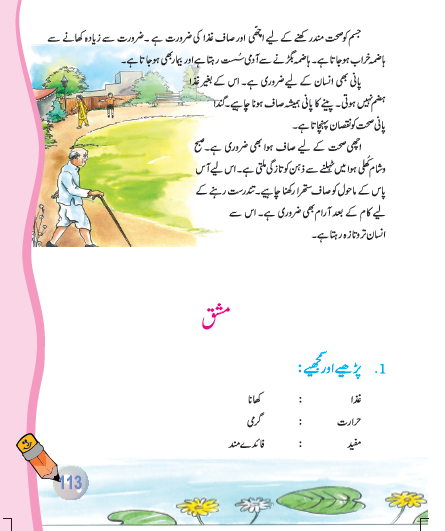 جسم کو صحت مند رکھنے کے لیے اچھی اور صاف غذا کی ضرورت ہے ۔ ضرورت سے زیادہ کھانے سے
ہاضمہ خراب ہوجاتا ہے۔ ہاضمہ بگڑنے سے آدمی سُست رہتا ہے اور بیمار بھی ہوجاتا ہے۔
پانی بھی انسان کے لیے ضروری ہے۔ اس کے بغیر غذا
ہضم نہیں ہوتی۔ پینے کا پانی ہمیشہ صاف ہونا چاہیے۔ گندا
پانی صحت کو نقصان پہنچاتا ہے۔
اچھی صحت کے لیے صاف ہوا بھی ضروری ہے۔ صبح
و شام کھلی ہوا میں ٹہلنے سے ذہن کو تازگی ملتی ہے۔ اس لیے آس
پاس کے ماحول کو صاف ستھرا رکھنا چاہیے۔ تندرست رہنے کے
لیے کام کے بعد آرام بھی ضروری ہے۔ اس سے
انسان تروتازہ رہتا ہے۔
مشق
1. پڑھیے اور سمجھیے :
غذا : کھانا
حرارت : گرمی
مفید : فائدے مند
113